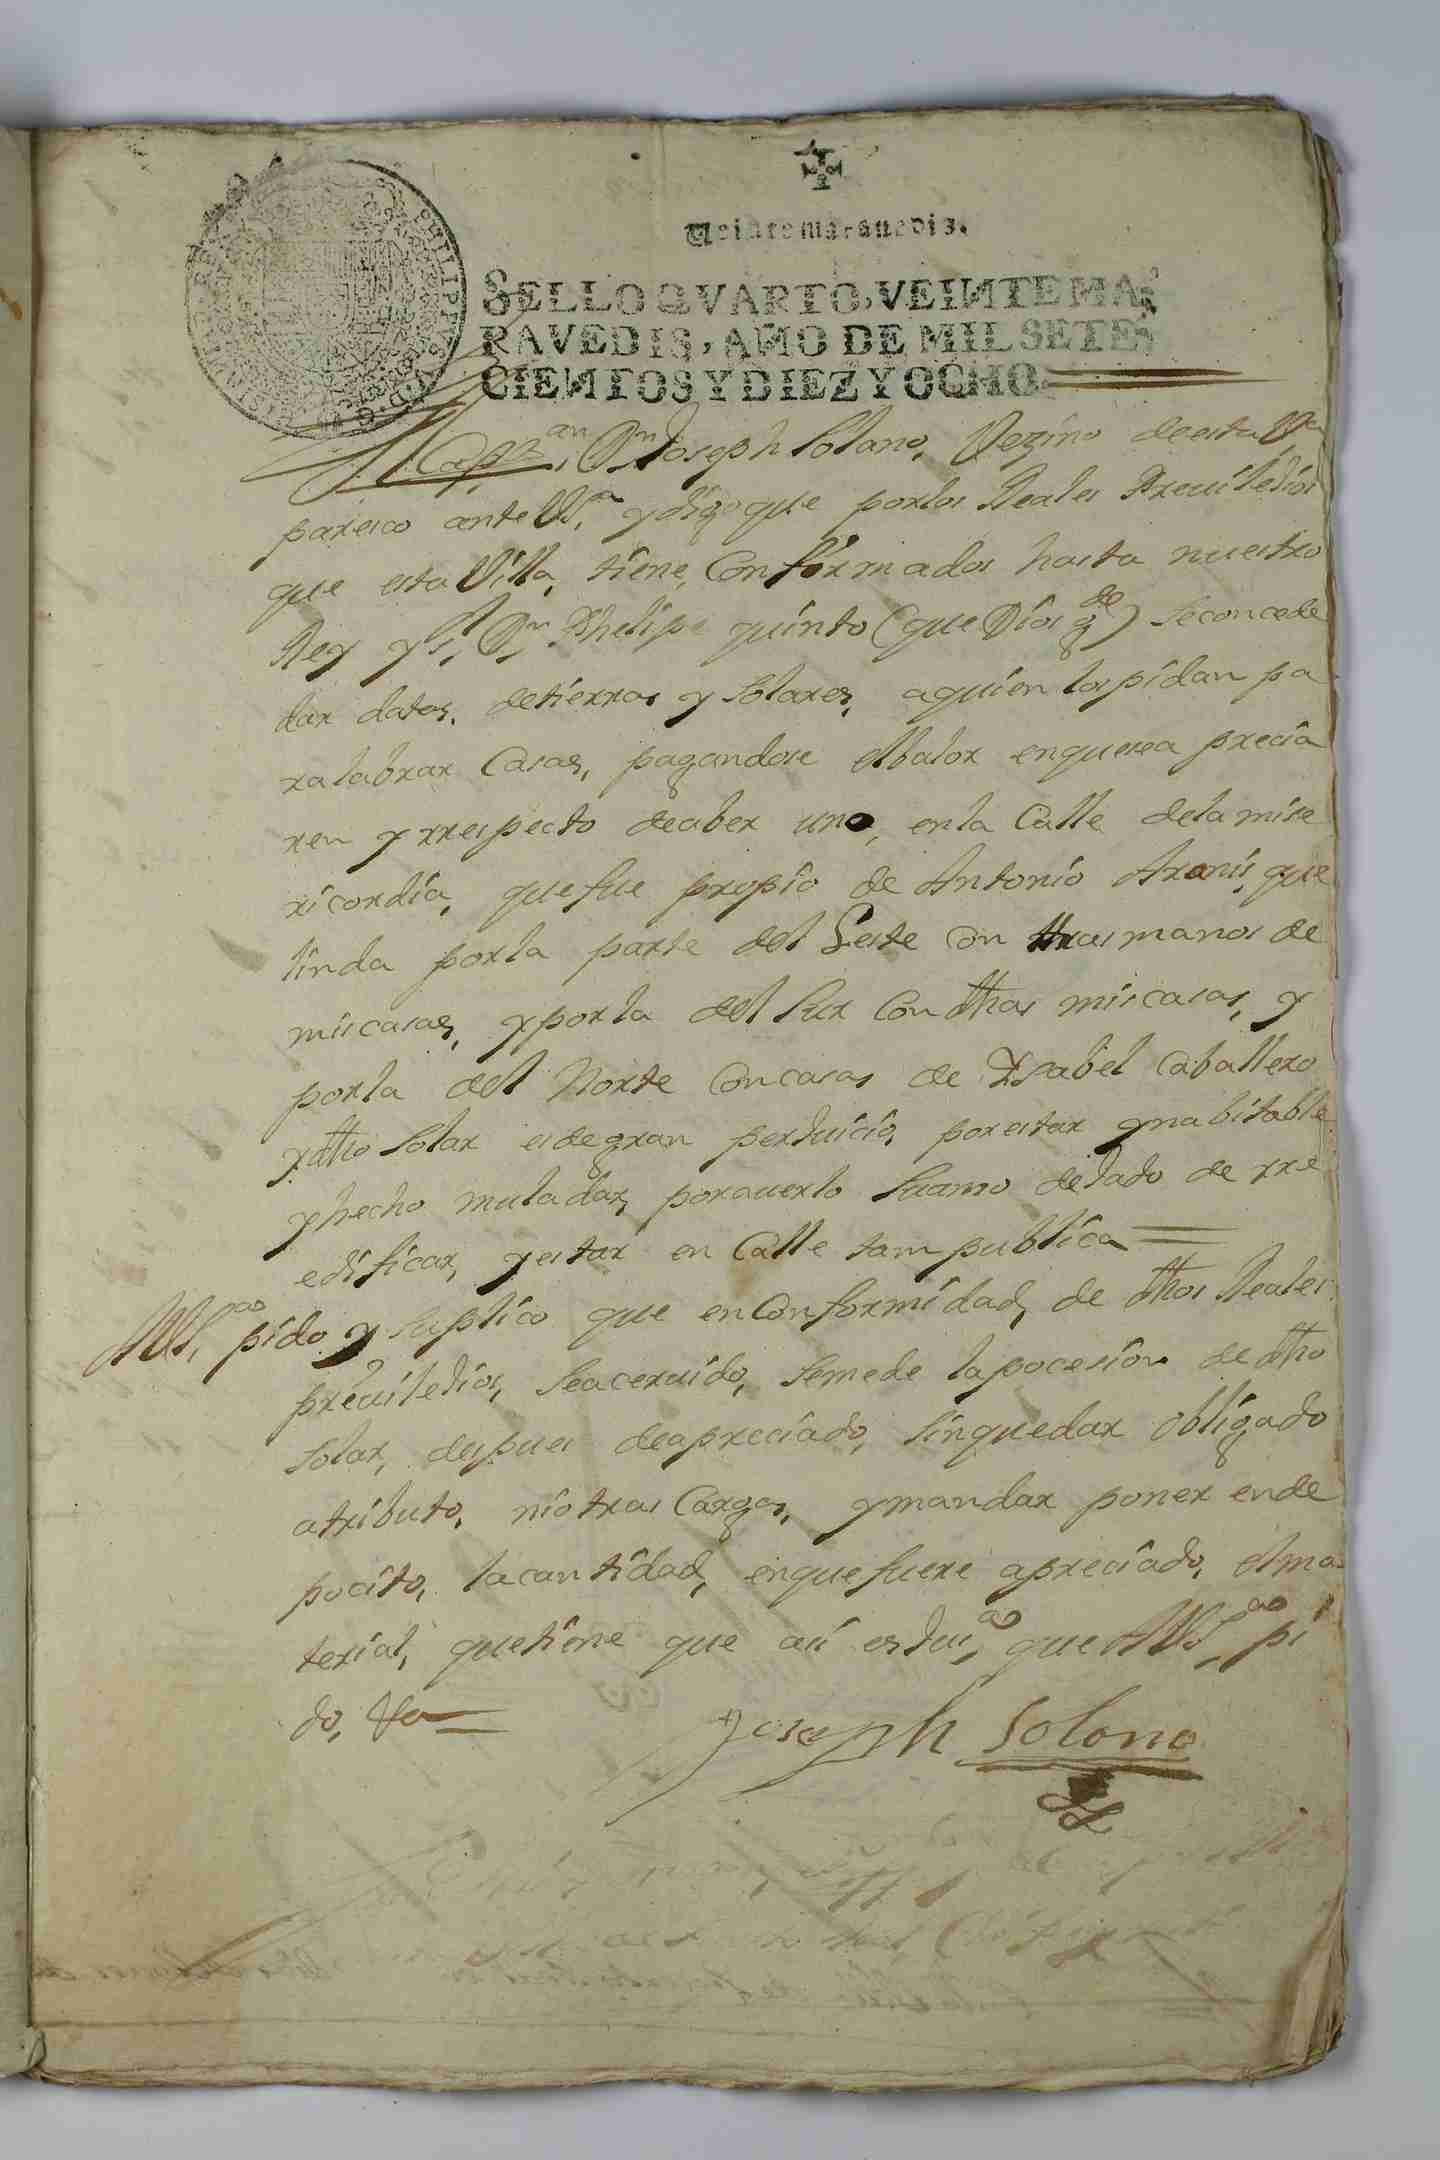 Veinte maravedis.
SELLO QVARTO, VEINTE MA-
RAVEDIS, AÑO DE MIL SETE-
CIENTOS Y DIEZ Y OCHO
PHILIPPVS
Cappan Dn Joseph Solano, Vezino de esta Va
paresco ante VSa y digo que por los Reales Previlejios
que esta Villa, tiene, Conformados hasta nuestro
Rey y Sr, Dn Phelipe quinto (que Dios gde) se concede
dar datas, de tierras y solares, a quien los pidan pa
ra labrar Casas, pagandose el balor en que sea precia
ren y rrespecto de aber uno, en la Calle de la mise
ricordia, que fue propio de Antonio Aranis, que
linda por la parte del Leste con thrasmanos de
mis casas, y por la del Sur Con dthas mis casas, y
por la del Norte Con casas de Ysabel Caballero
y dtho Solar es de gran perjuicio, por estar ynabitable
y hecho muladar, por averlo su amo dejado de rre
edificar, y estar en Calle tam publica
A VSao, pido y suplico que en Conformidad, de dthos Reales
previlejios, sea cervido, se me de la pocesion de dtho
solar, despues de apreciado, sin quedar obligado
a tributo, ni otras Cargas, y mandar poner en de
pocito, la cantidad, en que fuere apreciado, el ma-
terial, que tiene que asi es jusao, que A VSao, pi
do, Va
Joseph Solano